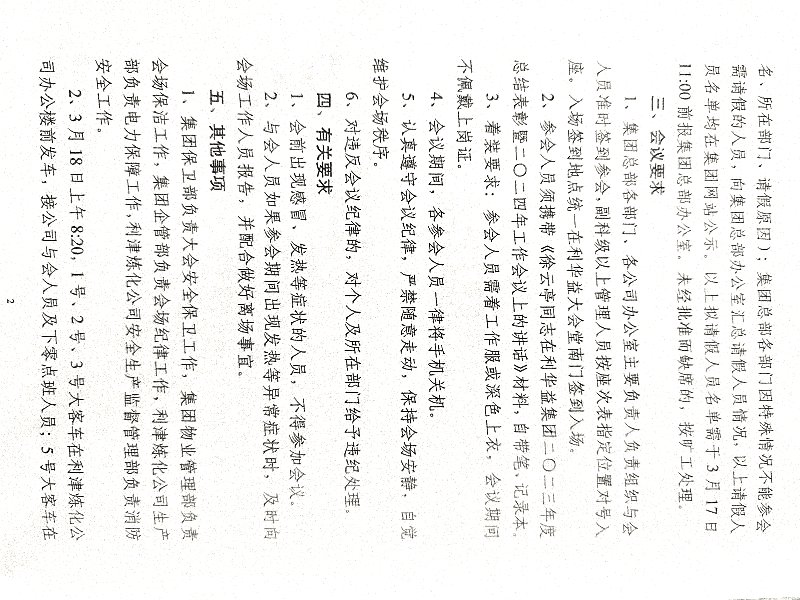 名、所在部门、请假原因)；集团总部各部门因特殊情况不能参会
需请假的人员，向集团总部办公室汇总请假人员情况，以上请假人
员名单均在集团网站公示。以上拟请假人员名单需于 3 月 17 日
11:00 前报集团总部办公室。未经批准而缺席的，按旷工处理。
三、会议要求
1、集团总部各部门、各公司办公室主要负责人负责组织与会
人员准时签到参会,副科级以上管理人员按座次表指定位置对号入
座。入场签到地点统一在利华益大会堂南门签到入场。
2、参会人员须携带《徐云亭同志在利华益集团二〇二三年度
总结表彰暨二〇二四年工作会议上的讲话》材料，自带笔、记录本。
3、着装要求：参会人员需着工作服或深色上衣，会议期间
不佩戴上岗证。
4、会议期间，各参会人员一律将手机关机。
5、认真遵守会议纪律，严禁随意走动，保持会场安静，自觉
维护会场秩序。
6、对违反会议纪律的，对个人及所在部门给予违纪处理。
四、有关要求
1、会前出现感冒、发热等症状的人员，不得参加会议。
2、与会人员如果参会期间出现发热等异常症状时，及时向
会场工作人员报告，并配合做好离场事宜。
五、其他事项
1、集团保卫部负责大会安全保卫工作，集团物业管理部负责
会场保洁工作，集团企管部负责会场纪律工作，利津炼化公司生产
部负责电力保障工作,利津炼化公司安全生产监督管理部负责消防
安全工作。
2、3 月 18 日上午 8:20，1 号、2 号、3 号大客车在利津炼化公
司办公楼前发车，接公司与会人员及下零点班人员；5 号大客车在
2